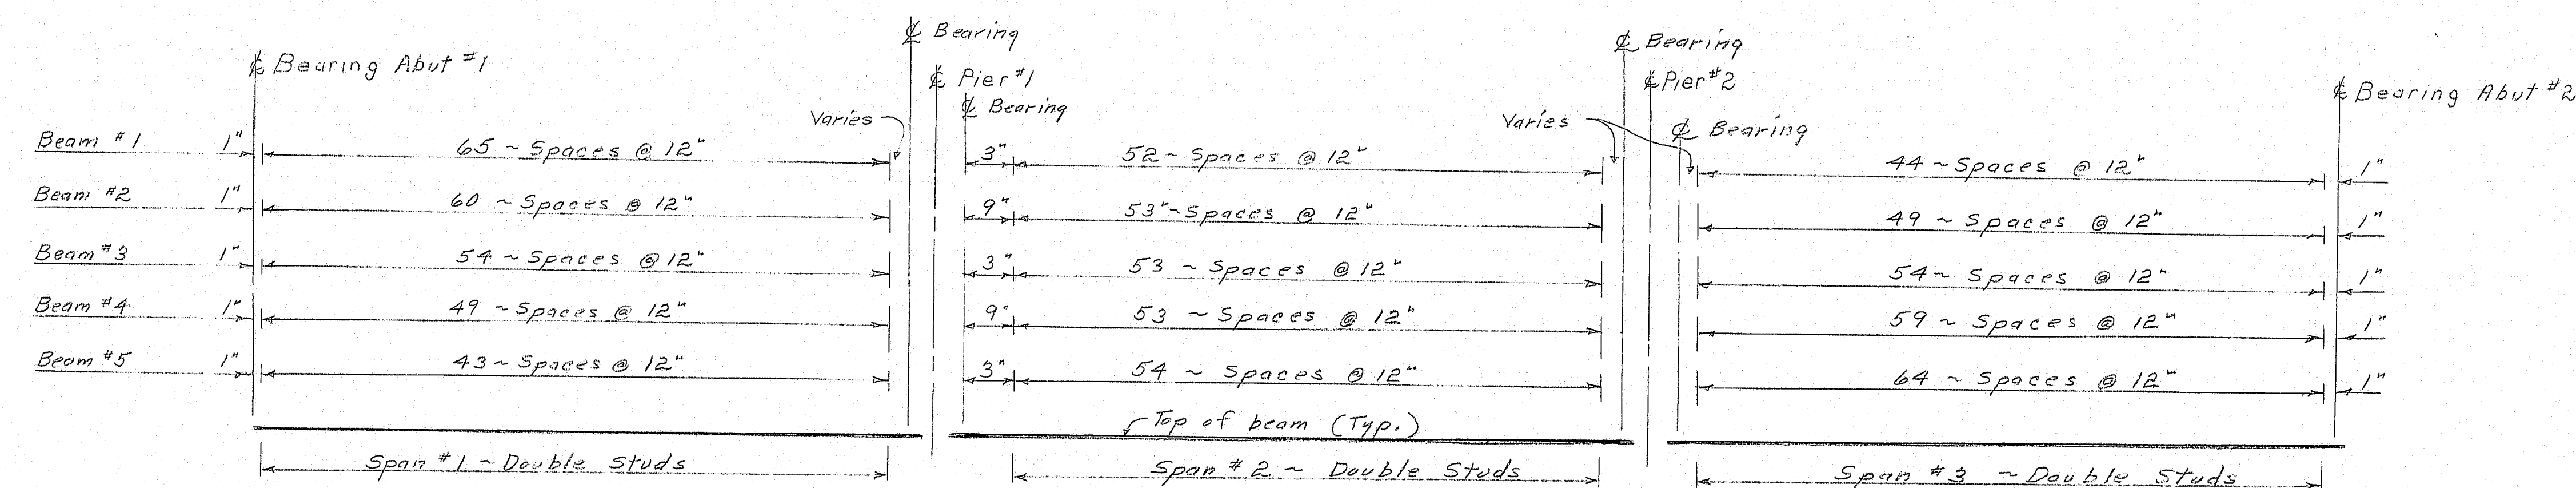 ℄ Bearing Abut #1
℄ Bearing
℄ Pier #1
℄ Bearing
℄ Bearing
℄ Pier #2
℄ Bearing
℄ Bearing Abut #2
Varies
Varies
Beam #1 1" 65 ~ Spaces @ 12" 3" 52 ~ Spaces @ 12" 44 ~ Spaces @ 12" 1"
Beam #2 1" 60 ~ Spaces @ 12" 9" 53"~ Spaces @ 12" 49 ~ Spaces @ 12" 1"
Beam #3 1" 54 ~ Spaces @ 12" 3" 53 ~ Spaces @ 12" 54 ~ Spaces @ 12" 1"
Beam #4 1" 49 ~ Spaces @ 12" 9" 53 ~ Spaces @ 12" 59 ~ Spaces @ 12" 1"
Beam #5 1" 43 ~ Spaces @ 12" 3" 54 ~ Spaces @ 12" 64 ~ Spaces @ 12" 1"
Top of beam (Typ.)
Span #1 ~ Double Studs
Span #2 ~ Double Studs
Span #3 ~ Double Studs